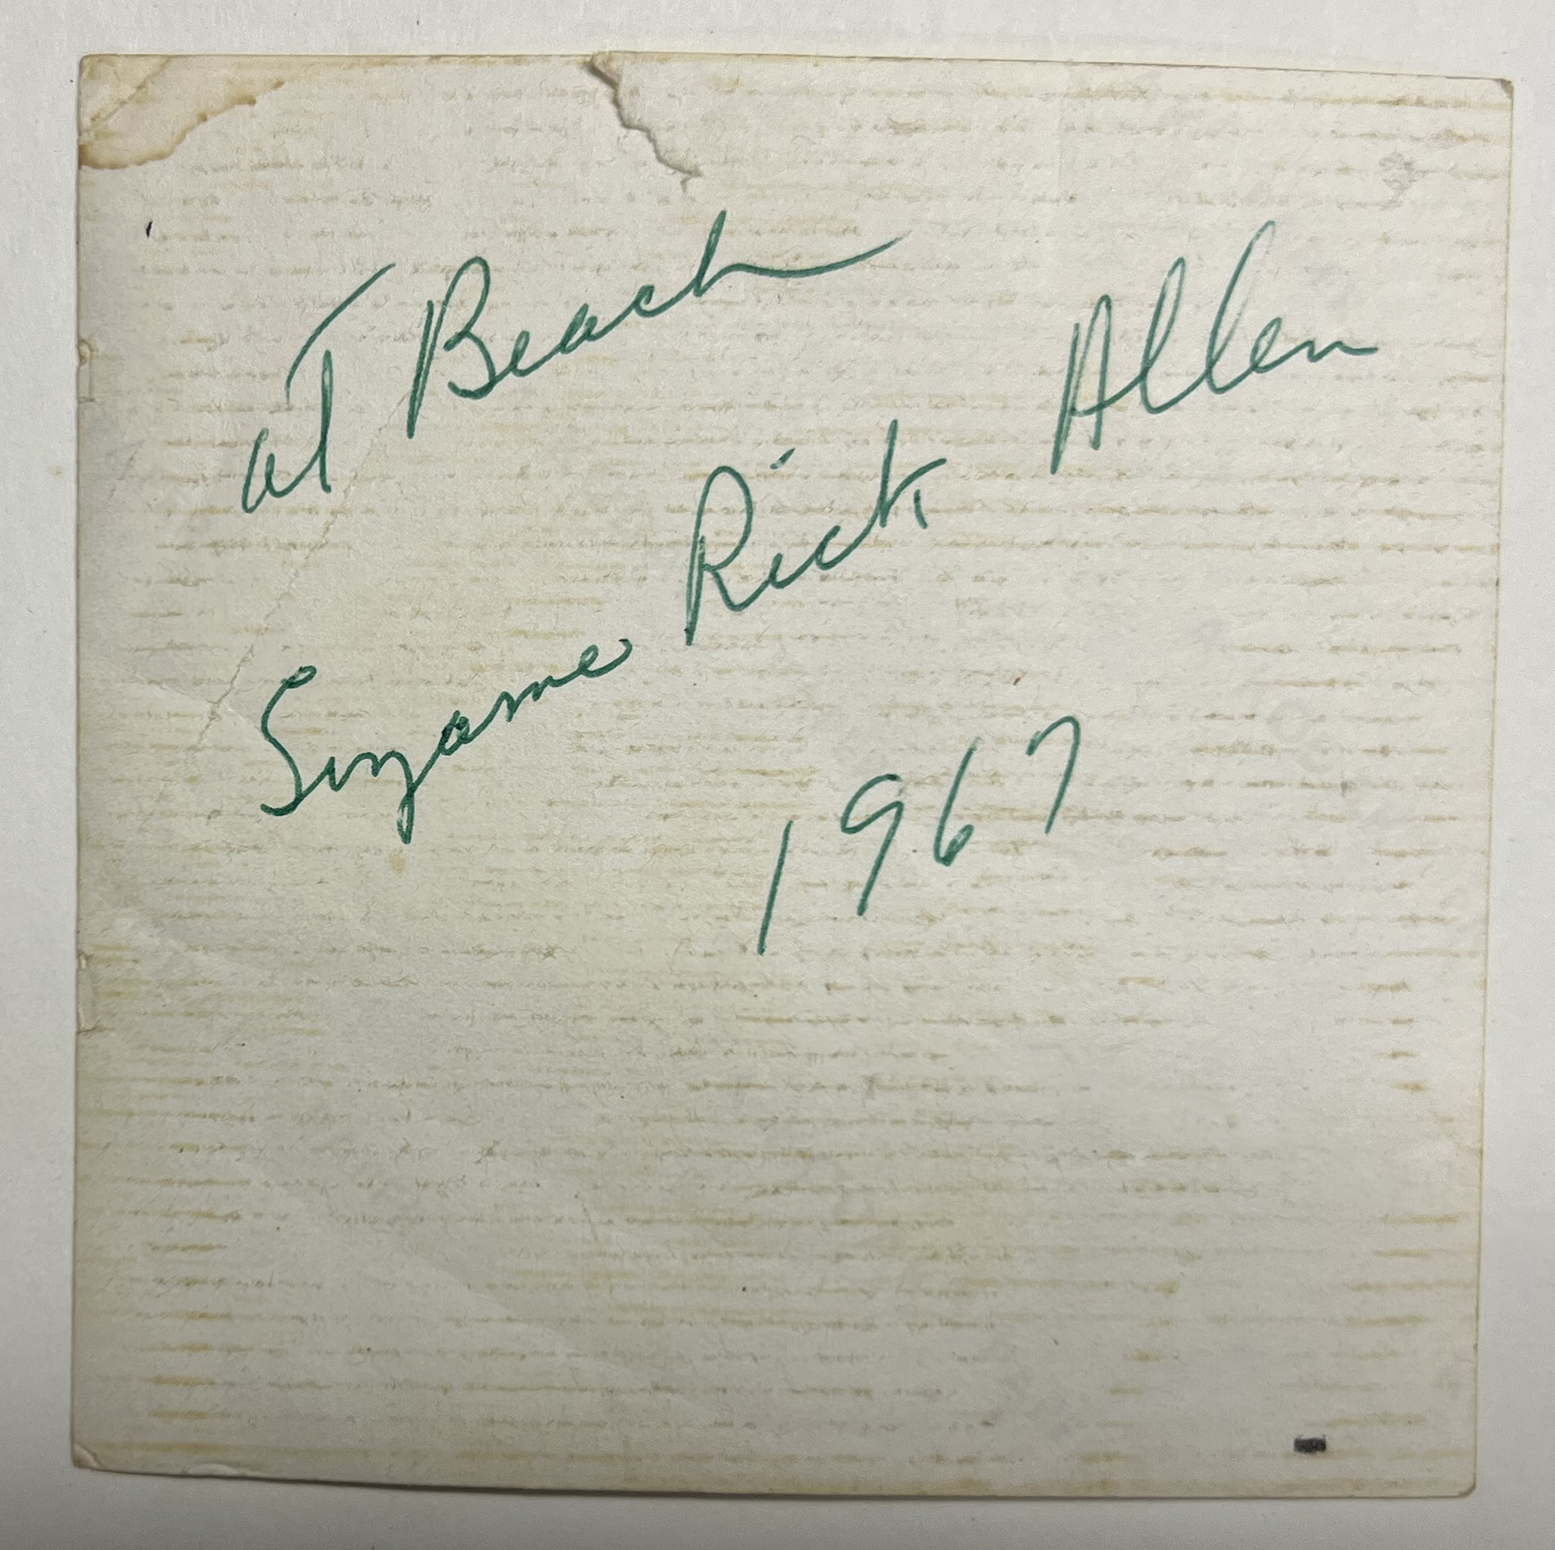 at Beach
Suzanne Rick Allen
1967